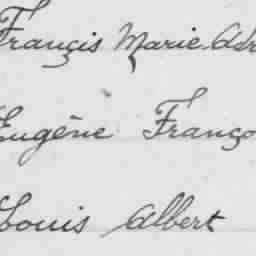 Françis Marie Adr
Eugène Franço
Louis Albert